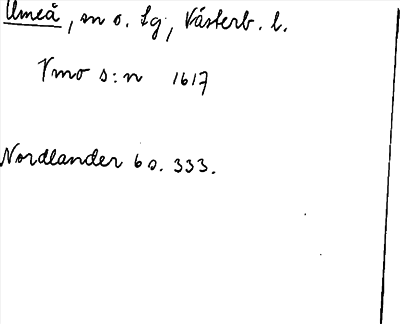 Umeå, sn o. lg, Västerb. l.
Vmo s:n 1617
Nordlander 6 s. 333.